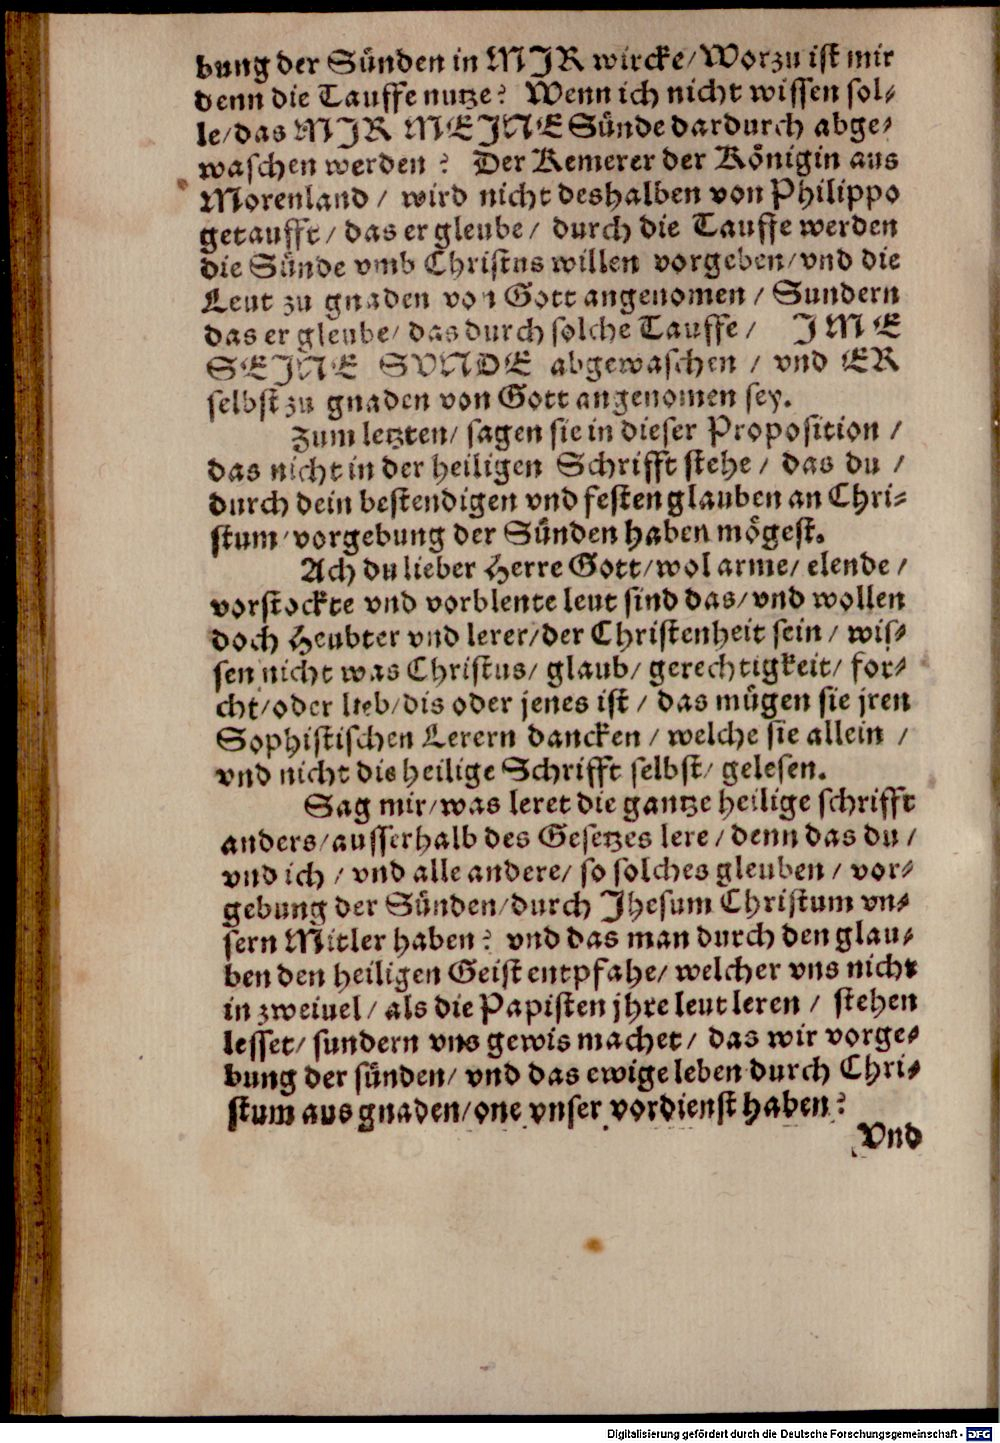 bung der Sünden in MJR wircke/Worzu ist mir
denn die Tauffe nutze? Wenn ich nicht wissen sol-
le/das MJR MEJNE Sünde dardurch abge-
waschen werden? Der Kemerer der Königin aus
Morenland/ wird nicht deshalben von Philippo
getaufft/ das er gleube/ durch die Tauffe werden
die Sünde vmb Christus willen vorgeben/vnd die
Leut zu gnaden von Gott angenomen/ Sundern
das er gleube/ das durch solche Tauffe/ JME
SEJNE SVNDE abgewaschen/ vnd ER
selbst zu gnaden von Gott angenomen sey.
Zum letzten/ sagen sie in dieser Proposition/
das nicht in der heiligen Schrifft stehe/ das du/
durch dein bestendigen vnd festen glauben an Chri-
stum/vorgebung der Sünden haben mögest.
Ach du lieber Herre Gott/wol arme/ elende/
vorstockte vnd vorblente leut sind das/vnd wollen
doch Heubter vnd lerer/der Christenheit sein/ wis-
sen nicht was Christus/ glaub/ gerechtigkeit/ for-
cht/oder lieb/dis oder jenes ist/ das mügen sie jren
Sophistischen Lerern dancken/ welche sie allein/
vnd nicht die heilige Schrifft selbst/ gelesen.
Sag mir/was leret die gantze heilige schrifft
anders/ausserhalb des Gesetzes lere/denn das du/
vnd ich/ vnd alle andere/ so solches gleuben/ vor-
gebung der Sünden/durch Jhesum Christum vn-
sern Mitler haben? vnd das man durch den glau-
ben den heiligen Geist entpfahe/ welcher vns nicht
in zweiuel/ als die Papisten jhre leut leren/ stehen
lesset/ sundern vns gewis machet/ das wir vorge-
bung der sünden/ vnd das ewige leben durch Chri-
stum aus gnaden/one vnser vordienst haben?
Vnd
Digitalisierung gefördert durch die Deutsche Forschungsgemeinschaft - DFG